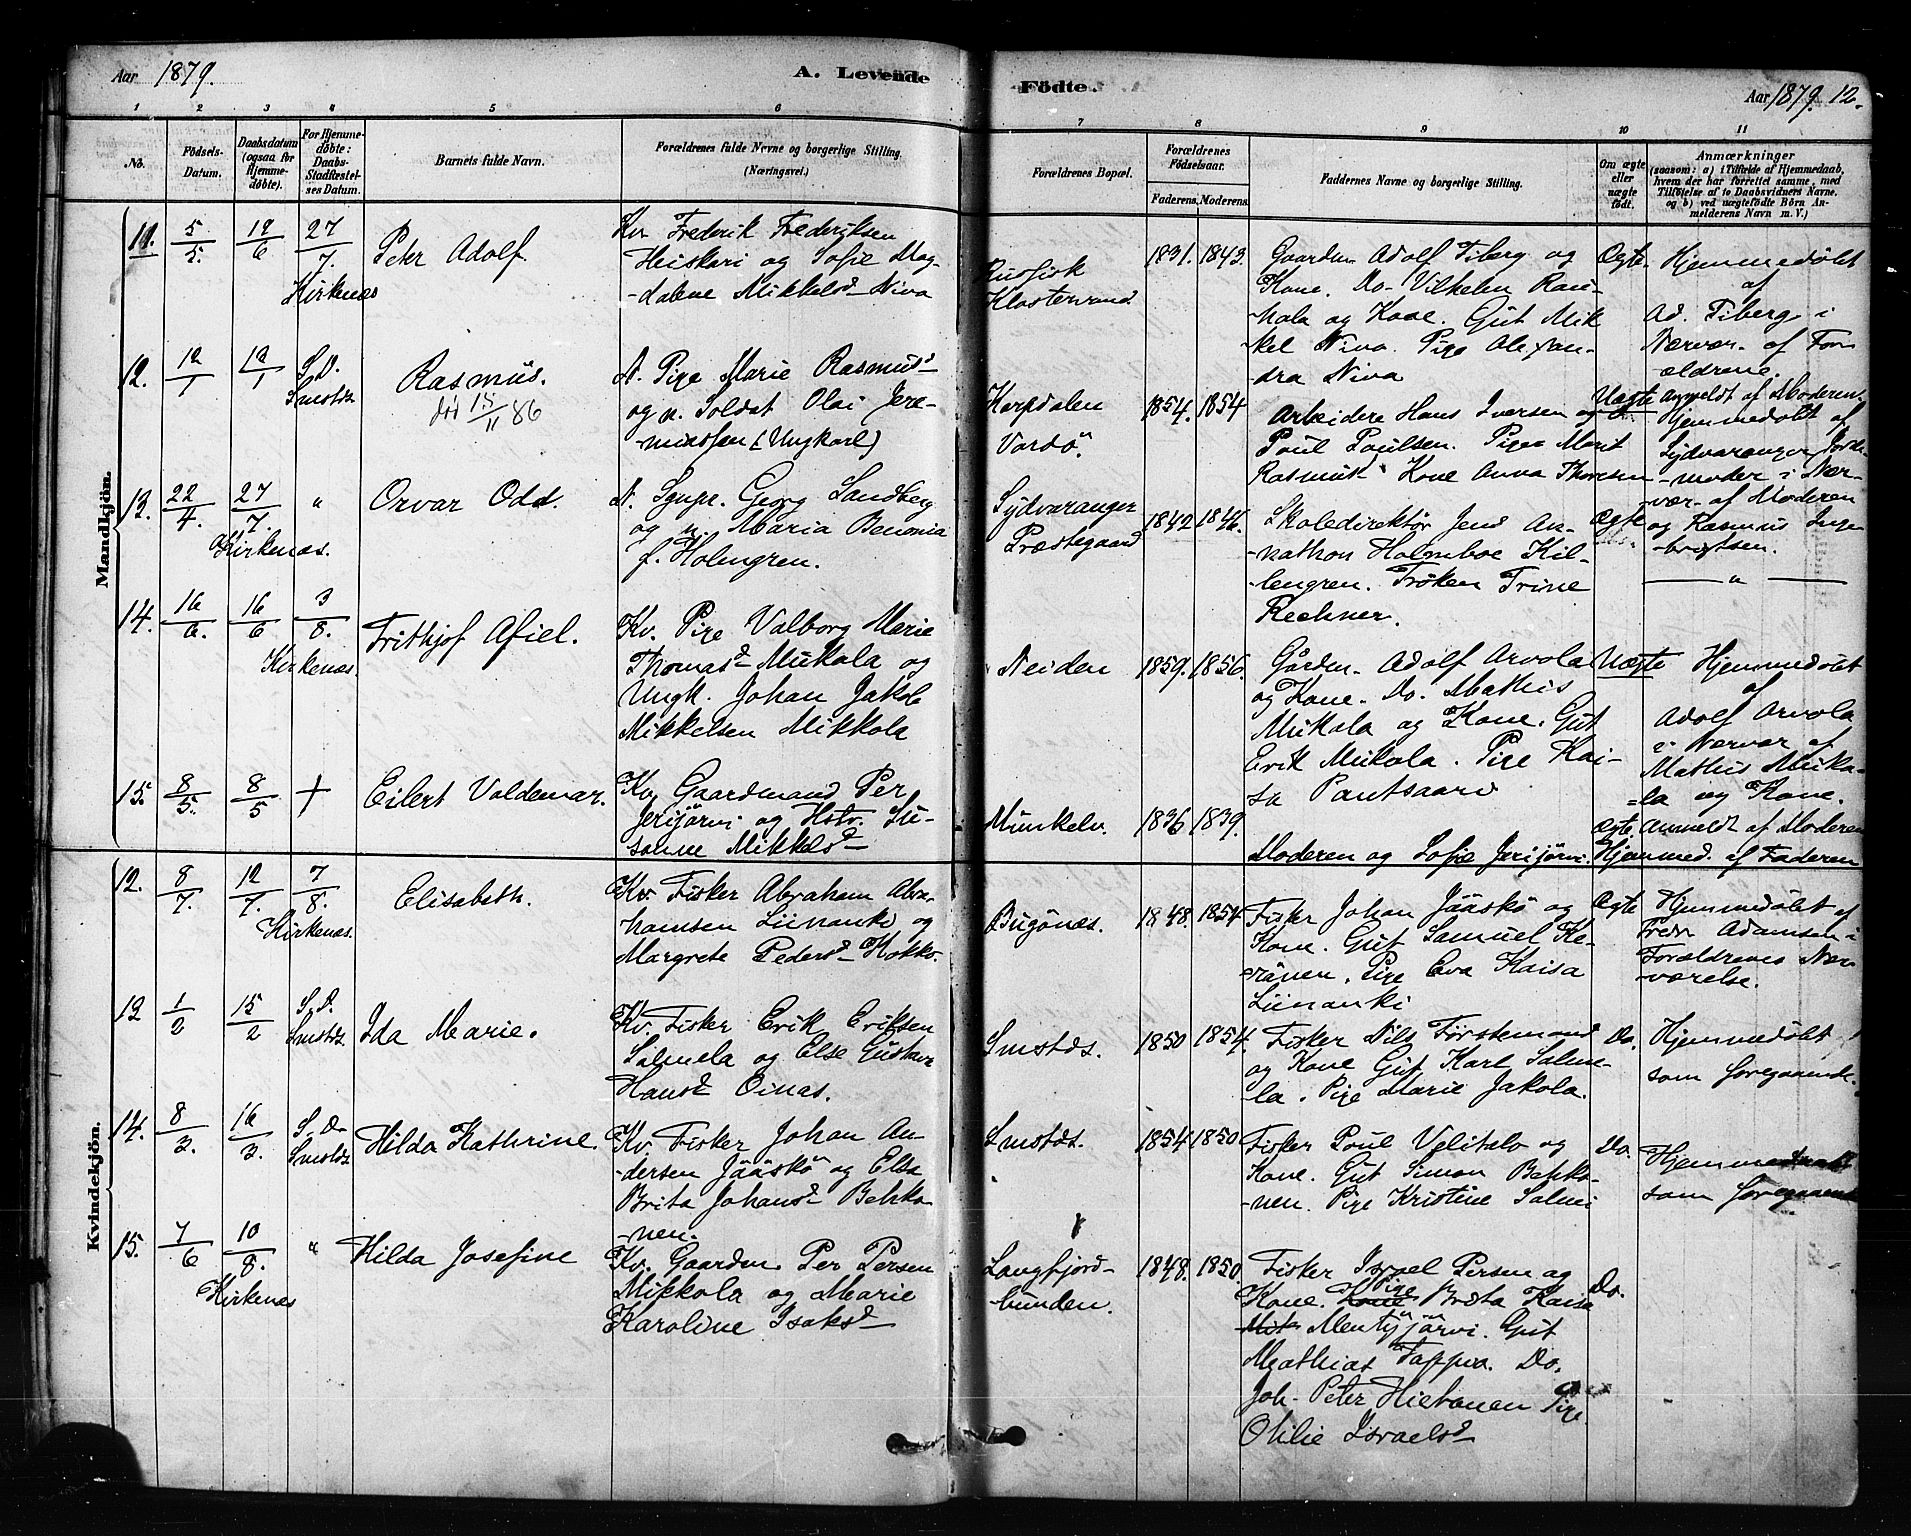 Aar 1879.
A. Levende
Födte.
Aar 1879. 12.
1 2 3 4 5 6 7 8 9 10 11
No.
Födsels-
Datum.
Daabsdatum
(ogsaa for
Hjemme-
döbte).
For Hjemme-
döbte:
Daabs-
Stadfæstel-
ses Datum.
Barnets fulde Navn.
Forældrenes fulde Navne og borgerlige Stilling
(Næringsvei.)
Forældrenes Bopæl.
Forældrenes
Födselsaar.
Faderens. Moderens.
Faddernes Navne og borgerlige Stilling.
Om ægte
eller
uægte
födt.
Anmærkninger
(saasom: a) i Tilfælde af Hjemmedaab,
hvem der har forrettet samme, med
Tilföielse af to Daabsvidners Navne.
og b) ved uægtefödte Börn An-
melderens Navn m. V.)
Mandkjön.
11. 5/5. 19/6 27/7.
Kirkenæs
Peter Adolf
Kv. Frederik Frederiksen
Heiskari og Sofie Mag-
dalene Mikkelsd Niva
Russisk
Klostervand
1831. 1843.
Gaardm. Adolf Fiberg og
Kone. Do. Vilhelm Rau-
hala og Kone. Gut Mik
kel Niva. Pige Alexan-
dra Niva
Ægte.
Hjemmedöbt
af
Ad. Fiberg i
Nærvær. af For-
ældrene.
12. 12/1 13/1 S.D.
Smstds.
Rasmus.
död 15/11 86
N. Pige Marie Rasmusd
og n. Soldat Olai Jere-
miassen (Ungkarl)
Karpdalen
Vardö.
1854. 1854
Arbeidere Hans Iversen og
Poul Poulsen. Pige Marit
Rasmusd Kone Anna Thoresen
Uægte
Anmeldt af Moderen.
Hjemmedöbt af
Sydvaranger Jorde-
moder i Nær-
vær. af Moderen
og Rasmus Inge-
brigtsen.
13. 22/4. 27/7. "
Kirkenæs.
Orvar Odd.
N. Sgnpr. Georg Sandberg
og n. Maria Benonia
f. Holmgren.
Sydvaranger
Præstegaard
1842 1846.
Skoledirektör Jens An-
nathon Holmboe Kil-
lengren. Fröken Trine
Rechner.
Ægte
— " —
14. 16/6. 16/6 3/8.
Kirkenæs.
Frithjof Afiel.
Kv. Pige Valborg Marie
Thomasd Mukola og
Ungk. Johan Jakob
Mikkelsen Mikkola
Neiden
1859. 1856.
Gårdm. Adolf Arvola
og Kone. Do. Mathis
Mukola og Kone. Gut
Erik Mukola. Pige Kai-
sa Pantsaari
Uægte
Hjemmedöbt
af
Adolf Arvola
i Nærvær af
Mathis Muko-
la og Kone.
15. 8/5. 8/5 +
Eilert Valdemar.
Kv. Gaardmand Per
Jerijärvi og Hstr. Su-
sanne Mikkelsd
Munkelv.
1836 1839.
Moderen og Sofie Jerijärvi.
Ægte.
Anmeldt af Moderen
Hjemmed. af Faderen
Kvindekjön.
12. 8/7. 12/7. 7/8.
Kirkenæs.
Elisabeth.
Kv. Fisker Abraham Abra-
hamsen Liinanki og
Margrete Pedersd Kokko.
Bugönæs.
1848. 1854.
Fisker Johan Jääskö og
Kone. Gut Samuel Ke-
ränen. Pige Eva Kaisa
Liinanki
Ægte
Hjemmedöbt af
Fredr. Adamsen i
Forældrenes Nær-
værelse.
13 1/2 15/2 S.D.
Smstds.
Ida Marie.
Kv. Fisker Erik Eriksen
Salmela og Else Gustava
Hansd Oinas.
Smstds.
1850 1854.
Fisker Nils Förstemand
og Kone Gut Karl Salme-
la. Pige Marie Jakola.
Do.
Hjemmedöbt
som foregaaende.
14. 8/3. 16/3. S.D.
Smstds
Hilda Kathrine.
Kv. Fisker Johan An-
dersen Jääskö og Elsa
Brita Johansd Behko-
nen.
Smstds.
1854 1850
Fisker Poul Velitalo og
Kone. Gut Simon Behko-
nen. Pige Kristine Salmi
Do.
Hjemmedöbt
som foregaaende
15. 7/6 10/8. "
Kirkenæs
Hilda Josefine
Kv. Gaardm. Per Persen
Mikkola og Marie
Karoline Isaksd
Langfjord-
bunden.
1848. 1850
Fisker Israel Persen og
Kone. Pige Brita Kaisa
Mentyjärvi. Gut
Mathias Tappio. Do.
Joh. Peter Hietanen Pige
Otilie Israelsd
Do.